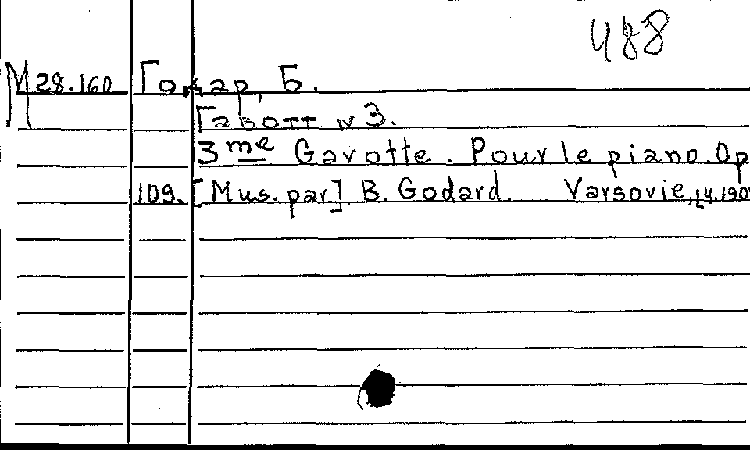 488
М 28.160 Годар, Б.
Гавотт №3.
3me Gavotte. Pour le piano. Op
109. [Mus. par] B. Godard. Varsovie,